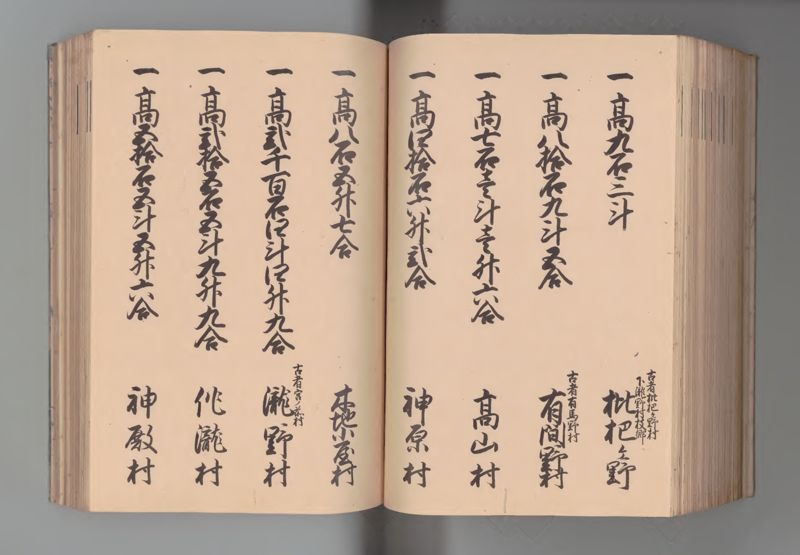 一 高九石三斗
古者枇杷之野村
下瀧野村枝郷
枇杷之野
一 高八拾石九斗五合
古者有馬野村
有間野村
一 高七石壱斗壱升六合
高山村
一 高四拾石六升弐合
神原村
一 高八石五升七合
木地小屋村
一 高弐千百石四斗四升九合
古者宮ノ村
瀧野村
一 高弐拾五石五斗九升九合
作瀧村
一 高五拾石五斗五升六合
神殿村